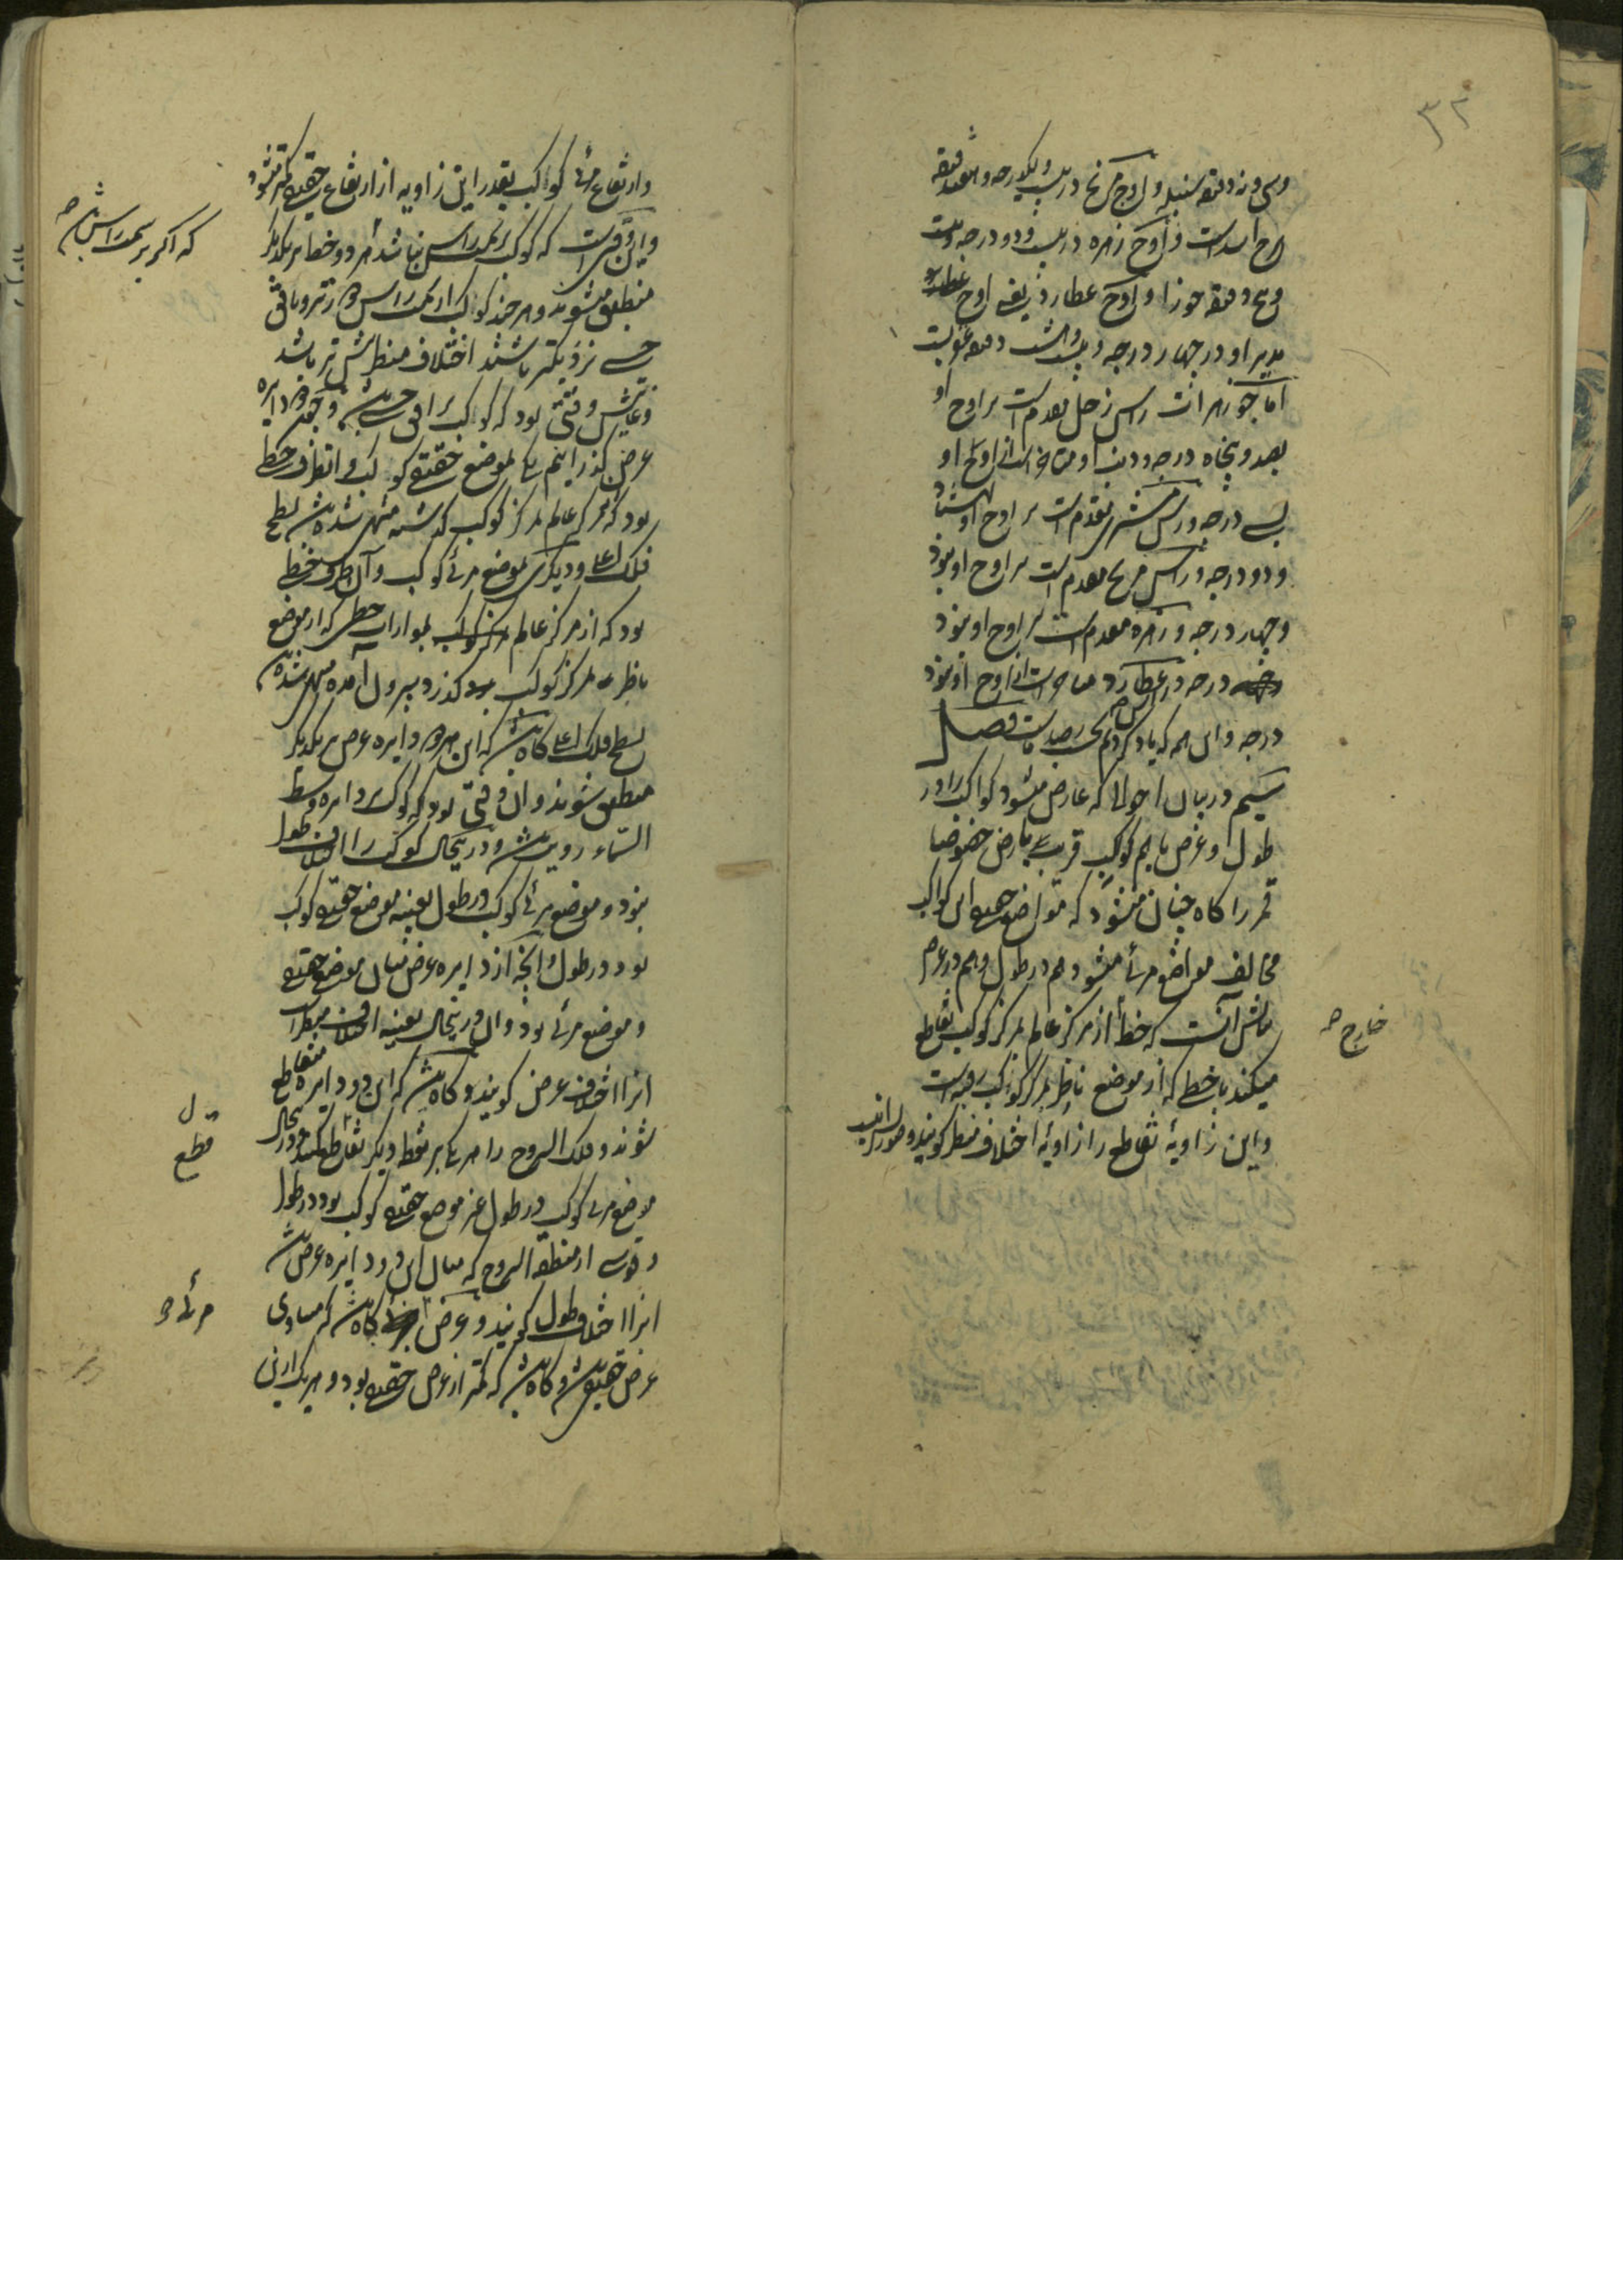 ۳۲
وسی و نه دقیقه سنبله و اوج مریخ در بیست و یکدرجه و هفده دقیقه
برج اسد است و اوج زهره در بیست و دو درجه و بیست
و پنج دقیقه جوزا و اوج عطارد یعنی اوج
مدیر او در چهار درجه و بیست و هشت دقیقه عقربست
اما جوزهرات راس زحل مقدم است بر اوج او
بصد و پنجاه درجه و ذنب او متاخر است از اوج او
بسی درجه و راس مشتری مقدم است بر اوج او بهشتاد
و دو درجه و راس مریخ مقدم است بر اوج او بنود
و چهار درجه و زهره مقدم است بر اوج او بنود
درجه و راس عطارد متاخر است از اوج او بنود
درجه و این همه که یاد کردیم بحسب رصد ماست فصل
سیم در بیان احوالی که عارض میشود کواکب را در
طول و عرض باید هم کواکب قریب بارض خصوصا
قمر را گاه چنان میشود که مواضع حقیقی این کواکب
مخالف مواضع مرئی میشود هم در طول و هم در عرض
بیانش آنست که خط از مرکز عالم بمرکز کوکب تقاطع
خارج صح
میکند با خطی که از موضع ناظر بمرکز کوکب رفته است
و این زاویهٔ تقاطع را زاویهٔ اختلاف منظر گویند و صورتش اینست
وارتفاع مرئی کواکب بقدر این زاویه از ارتفاع حقیقی کمتر میشود
و این وقتی است که کوکب بر سمت راس نباشد هر دو خط بر یکدیگر
که اگر بر سمت راس باشد صح
منطبق میشوند و هر چند کواکب از سمت راس دورتر و بافق
حسی نزدیکتر باشند اختلاف منظر بیش تر باشد
و غایتش وقتی بود که کواکب بر افق حسی باشند و چون دو دایره
عرض گذرانیم یکی بموضع حقیقی کوکب و آن طرف خطی
بود که از مرکز عالم بمرکز کوکب گذشته منتهی شده باشد بسطح
فلک اعلی و دیگری بموضع مرئی کوکب و آن طرف خطی
بود که از مرکز عالم بموازات خطی که از موضع
ناظر بمرکز کوکب گذرد بیرون آمده منتهی شده
بسطح فلک اعلی گاه باشد که این هر دو دایره عرض بر یکدیگر
منطبق شوند و آن وقتی بود که کوکب بر دایره وسط
السماء رویت باشد و درینحال کوکب را اختلاف طول
نبود و موضع مرئی کوکب در طول بعینه موضع حقیقی کوکب
بود در طول و آنچه از دایره عرض میان موضع حقیقی
و موضع مرئی بود و آن درینحال بعینه اختلاف منظر است
انرا اختلاف عرض گویند و گاه باشد که این دو دایره متقاطع
شوند و فلک البروج را هر یک بر نقطه دیگر تقاطع کنند و درینحال
قطع
موضع مرئی کوکب در طول غیر موضع حقیقی کوکب بود در طول
و قوسی از منطقة البروج که میان این دو دایره عرض باشد
انرا اختلاف طول گویند و عرض گاه باشد که مساوی
مرئی
عرض حقیقی باشد و گاه باشد که کمتر از عرض حقیقی بود و هر یک از این